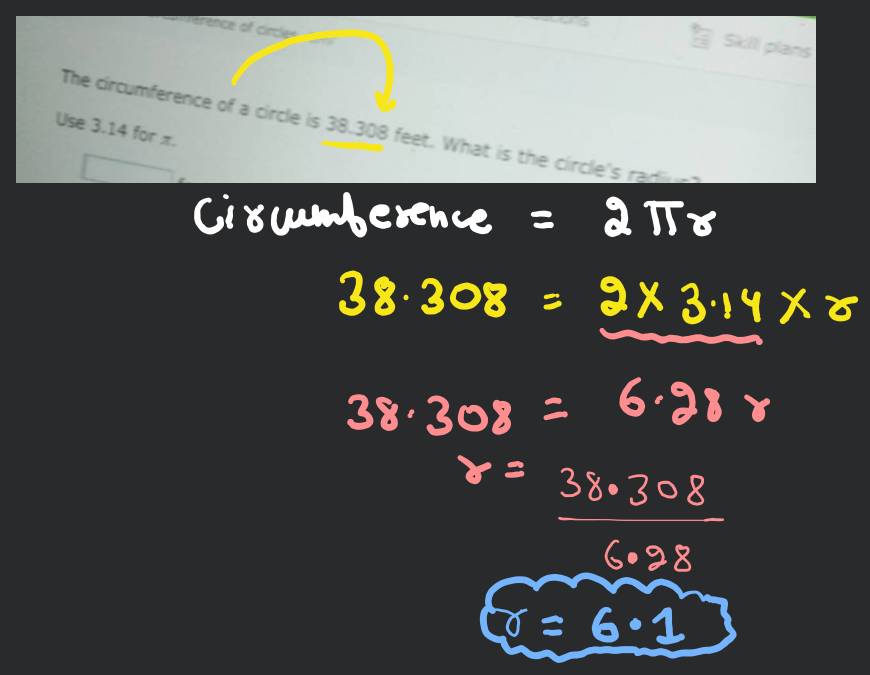 Skill plans
The circumference of a circle is 38.308 feet. What is the circle's radius?
Use 3.14 for π.
Circumference = 2πr
38.308 = 2 × 3.14 × r
38.308 = 6.28 r
r = 38.308
6.28
r = 6.1